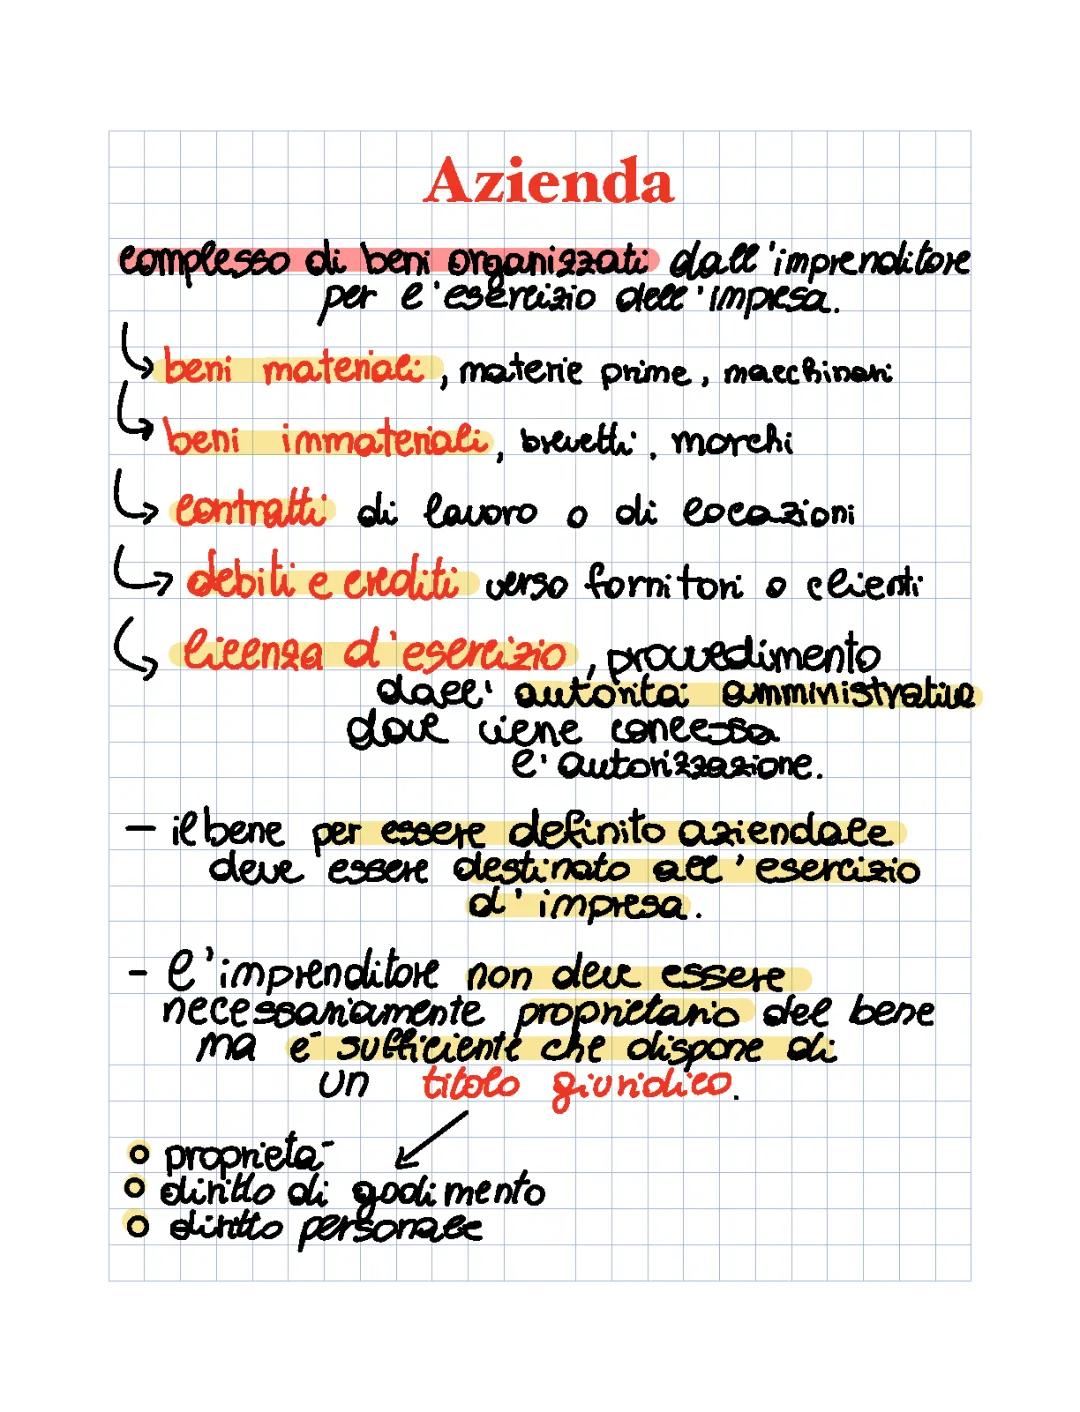 Azienda
complesso di beni organizzati dall'imprenditore
per l'esercizio dell'impresa.
beni materiali, materie prime, macchinari
beni immateriali, brevetti, marchi
contratti di lavoro o di locazioni
debiti e crediti verso fornitori o clienti
licenza d'esercizio, provvedimento
dall'autorità amministrativa
dove viene concessa
l'autorizzazione.
- il bene per essere definito aziendale
deve essere destinato all'esercizio
d'impresa.
- l'imprenditore non deve essere
necessariamente proprietario del bene
ma è sufficiente che dispone di
un titolo giuridico.
o proprietà
o diritto di godimento
o diritto personale